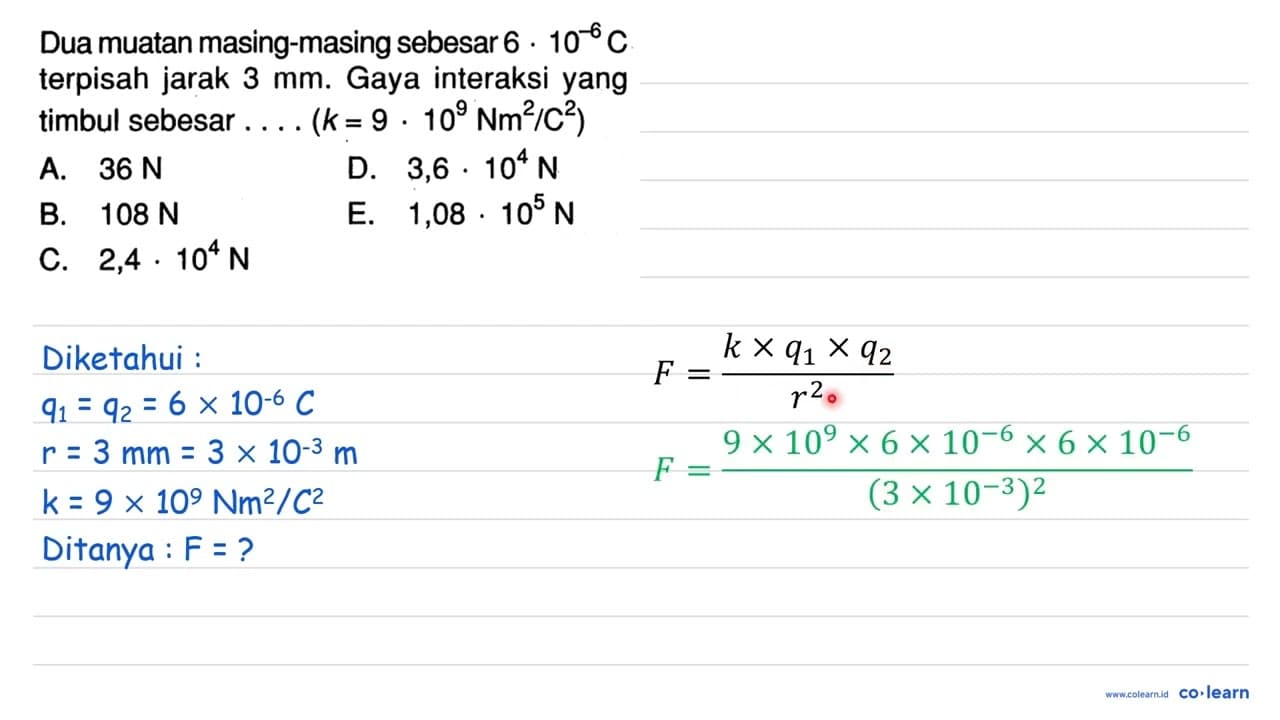 Dua muatan masing-masing sebesar 6 · 10⁻⁶ C
terpisah jarak 3 mm. Gaya interaksi yang
timbul sebesar . . . . (k = 9 · 10⁹ Nm²/C²)
A. 36 N D. 3,6 · 10⁴ N
B. 108 N E. 1,08 · 10⁵ N
C. 2,4 · 10⁴ N
Diketahui :
q₁ = q₂ = 6 × 10⁻⁶ C
r = 3 mm = 3 × 10⁻³ m
k = 9 × 10⁹ Nm²/C²
Ditanya : F = ?
F = (k × q₁ × q₂) / r²
F = (9 × 10⁹ × 6 × 10⁻⁶ × 6 × 10⁻⁶) / (3 × 10⁻³)²
www.colearn.id co·learn